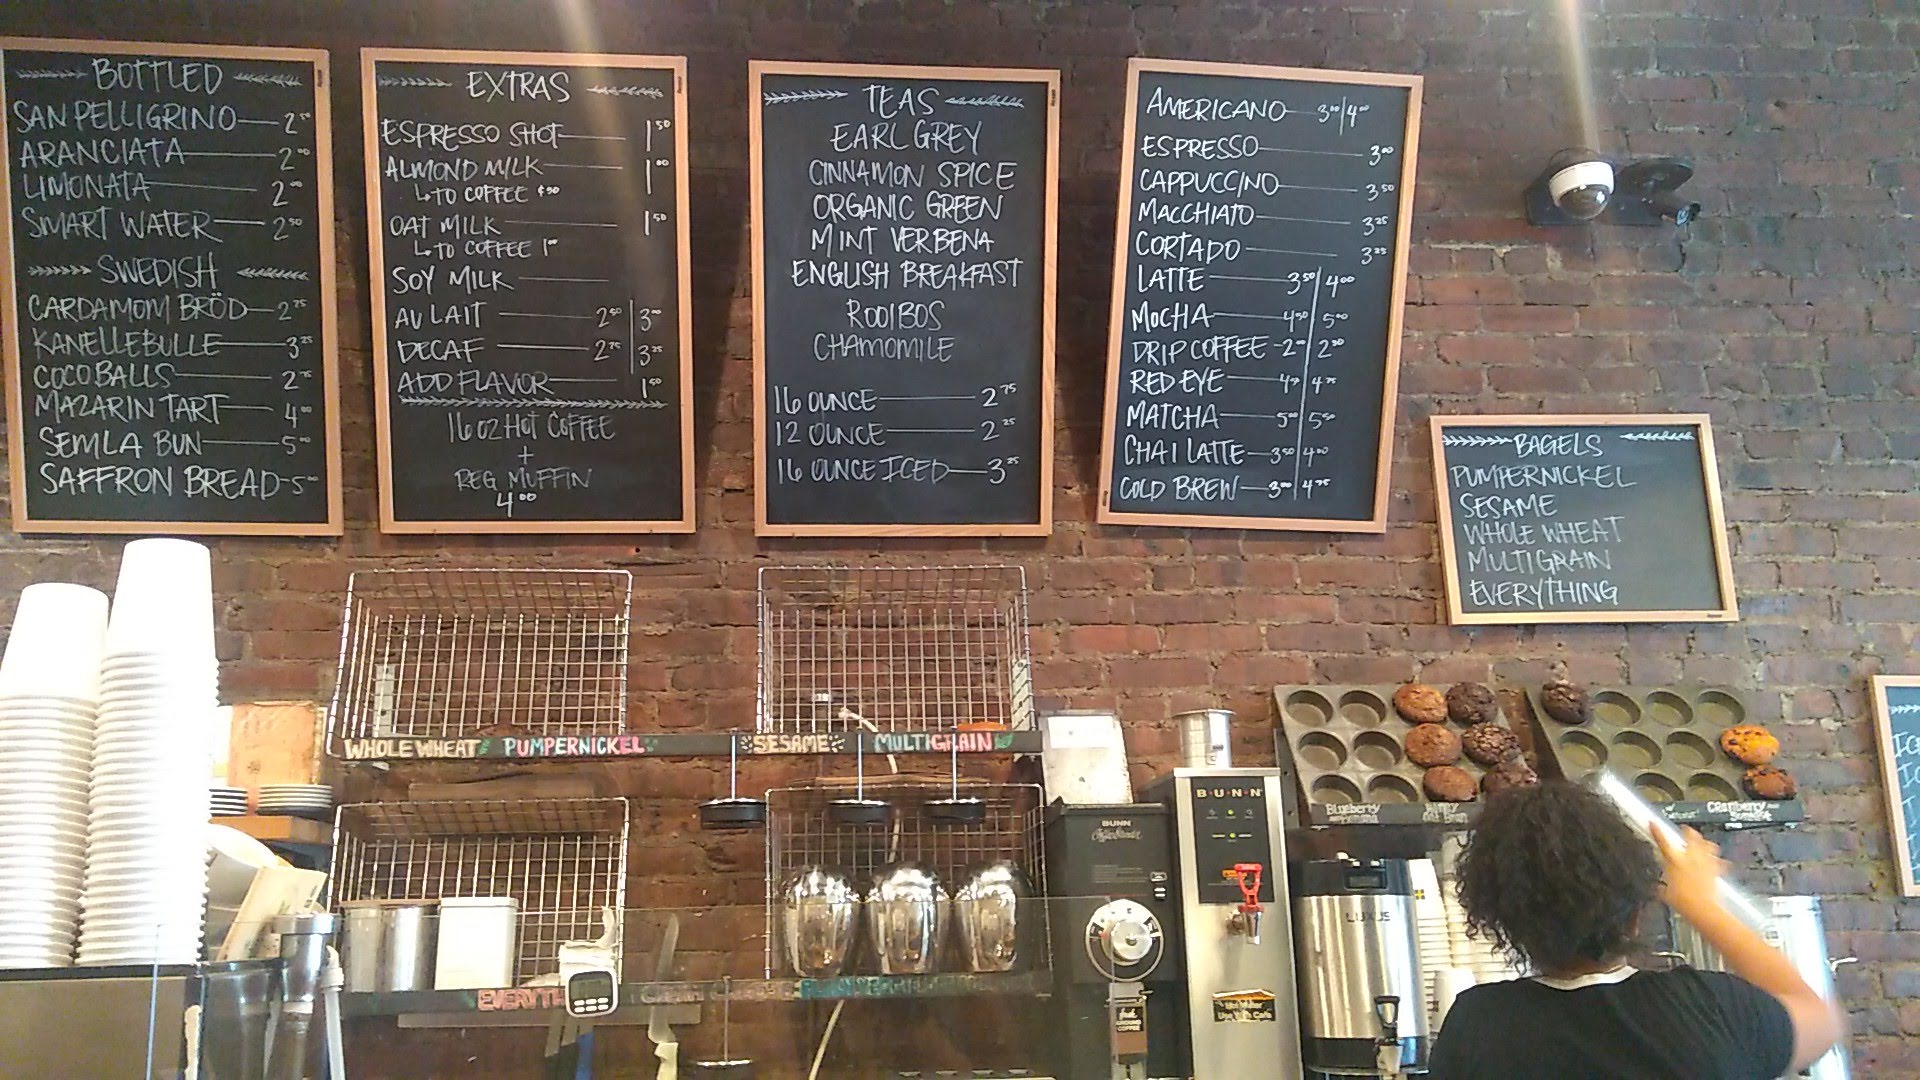 BOTTLED
SAN PELLIGRINO 2.50
ARANCIATA 2.00
LIMONATA 2.00
SMART WATER 2.50
SWEDISH
CARDAMOM BRÖD 2.75
KANELLEBULLE 3.25
COCOBALLS 2.75
MAZARIN TART 4.00
SEMLA BUN 5.00
SAFFRON BREAD 5.00
EXTRAS
ESPRESSO SHOT 1.50
ALMOND MILK 1.00
↳TO COFFEE $.50
OAT MILK 1.50
↳TO COFFEE 1.00
SOY MILK
AU LAIT 2.50 | 3.00
DECAF 2.75 | 3.25
ADD FLAVOR 1.50
16 OZ HOT COFFEE
+
REG MUFFIN
4.00
TEAS
EARL GREY
CINNAMON SPICE
ORGANIC GREEN
MINT VERBENA
ENGLISH BREAKFAST
ROOIBOS
CHAMOMILE
16 OUNCE 2.75
12 OUNCE 2.25
16 OUNCE ICED 3.25
AMERICANO 3.00 | 4.00
ESPRESSO 3.00
CAPPUCCINO 3.50
MACCHIATO 3.25
CORTADO 3.25
LATTE 3.50 | 4.00
MOCHA 4.50 | 5.00
DRIP COFFEE 2.00 | 2.50
RED EYE 4.25 | 4.75
MATCHA 5.00 | 5.50
CHAI LATTE 3.50 | 4.00
COLD BREW 3.00 | 4.75
BAGELS
PUMPERNICKEL
SESAME
WHOLE WHEAT
MULTIGRAIN
EVERYTHING
WHOLE WHEAT
PUMPERNICKEL
SESAME
MULTIGRAIN
BUNN
BUNN
Blueberry
Cranberry
LUXUS
Hot Water
Use With Care
GROUND
COFFEE